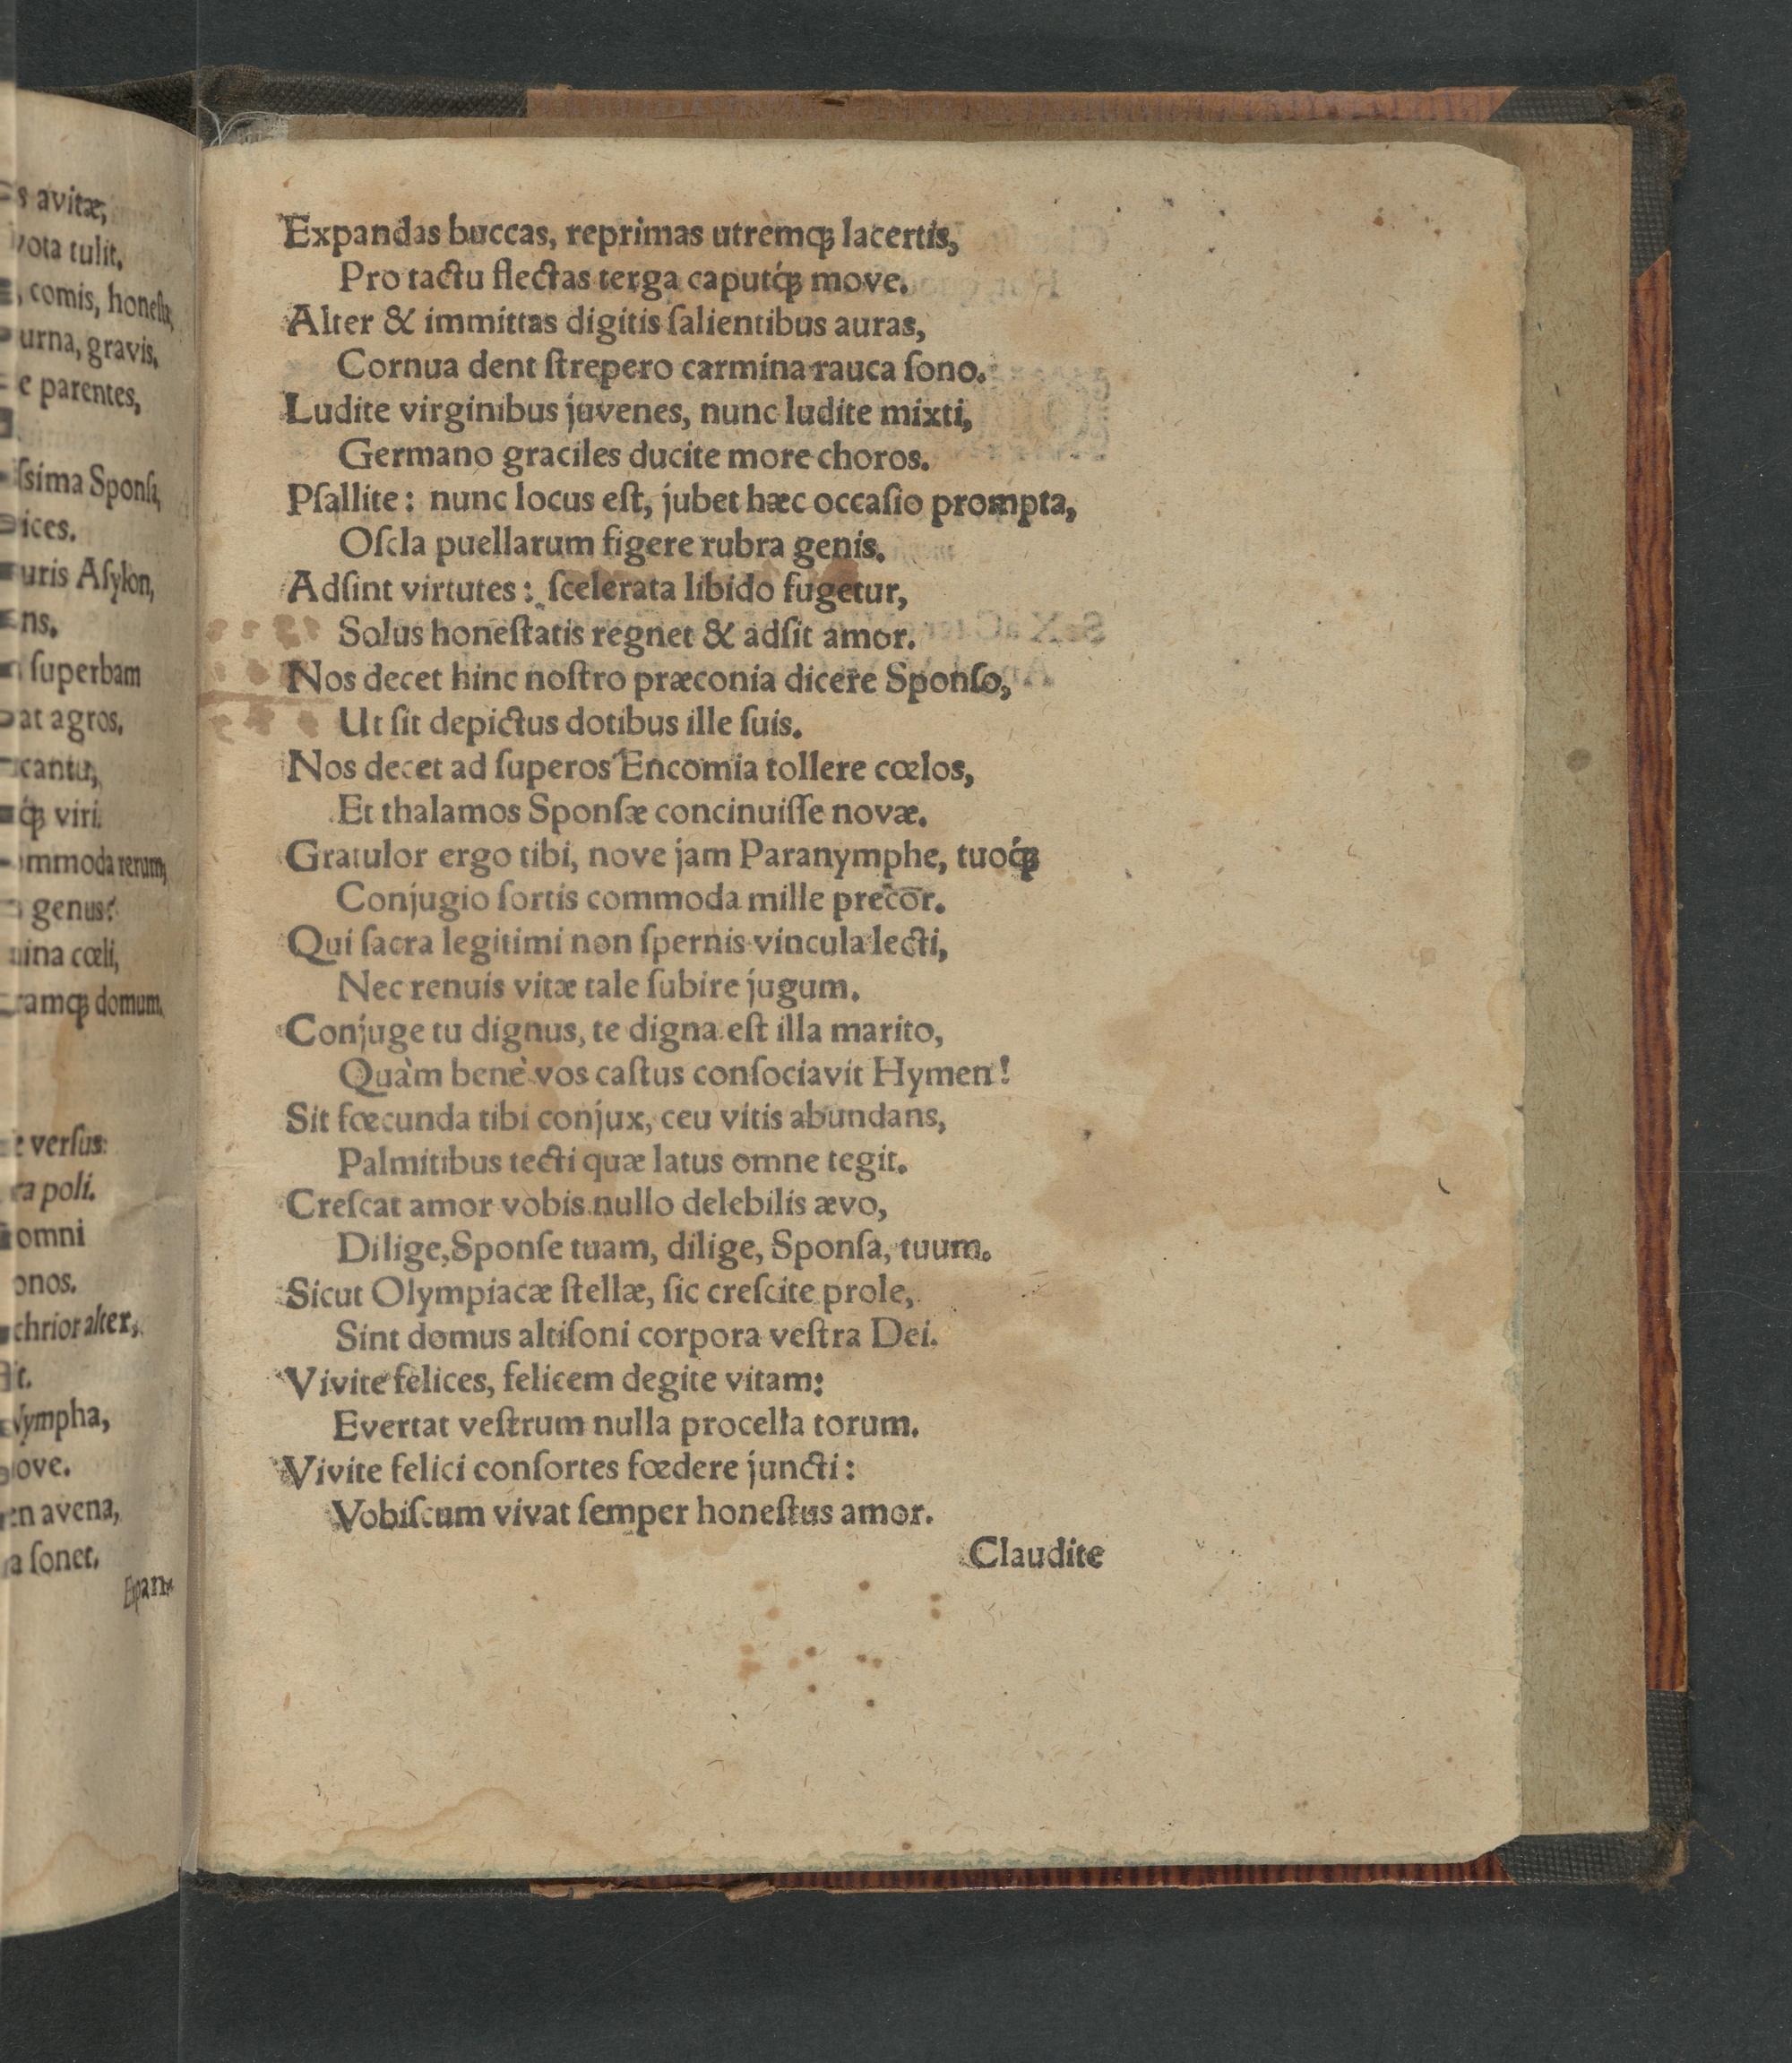 s avitæ,
vota tulit.
, comis, honesta,
urna, gravis.
e parentes,
ſsima Sponſa,
ices.
uris Aſylon,
ns.
ſuperbam
at agros.
cantu,
q́ꝫ viri.
ommoda rerum,
genus?
ina cœli,
ramqꝫ domum.
e verſus:
ra poli.
omni
onos.
chrior alter,
it.
Nympha,
ove.
en avena,
a ſonet.
Expandas buccas, reprimas utremqꝫ lacertis,
Pro tactu flectas terga caputq́ꝫ move.
Alter & immittas digitis ſalientibus auras,
Cornua dent ſtrepero carmina rauca ſono.
Ludite virginibus juvenes, nunc ludite mixti,
Germano graciles ducite more choros.
Pſallite: nunc locus eſt, jubet hæc occaſio prompta,
Oſcla puellarum figere rubra genis.
Adſint virtutes: ſcelerata libido fugetur,
Solus honeſtatis regnet & adſit amor.
Nos decet hinc noſtro præconia dicere Sponſo,
Ut ſit depictus dotibus ille ſuis.
Nos decet ad ſuperos Encomia tollere cœlos,
Et thalamos Sponſæ concinuiſſe novæ.
Gratulor ergo tibi, nove jam Paranymphe, tuoq́ꝫ
Conjugio ſortis commoda mille precor.
Qui ſacra legitimi non ſpernis vincula lecti,
Nec renuis vitæ tale ſubire jugum.
Conjuge tu dignus, te digna eſt illa marito,
Quàm benè vos caſtus conſociavit Hymen!
Sit fœcunda tibi conjux, ceu vitis abundans,
Palmitibus tecti quæ latus omne tegit.
Creſcat amor vobis nullo delebilis ævo,
Dilige, Sponſe tuam, dilige, Sponſa, tuum.
Sicut Olympiacæ ſtellæ, ſic creſcite prole,
Sint domus altiſoni corpora veſtra Dei.
Vivite felices, felicem degite vitam:
Evertat veſtrum nulla procella torum.
Vivite felici conſortes fœdere juncti:
Vobiſcum vivat ſemper honeſtus amor.
Claudite